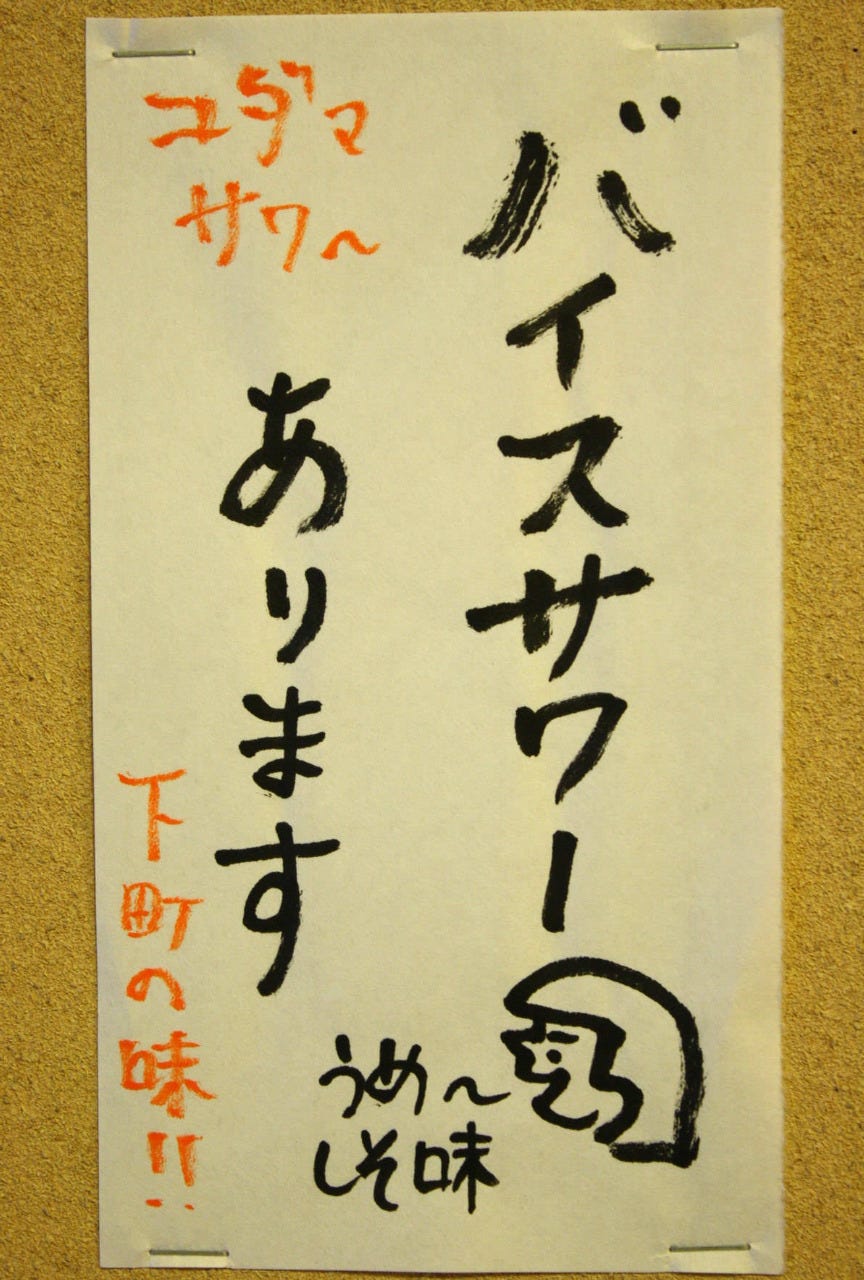 バイスサワー
うめ〜
しそ味
コダマ
サワ〜
あります
下町の味!!